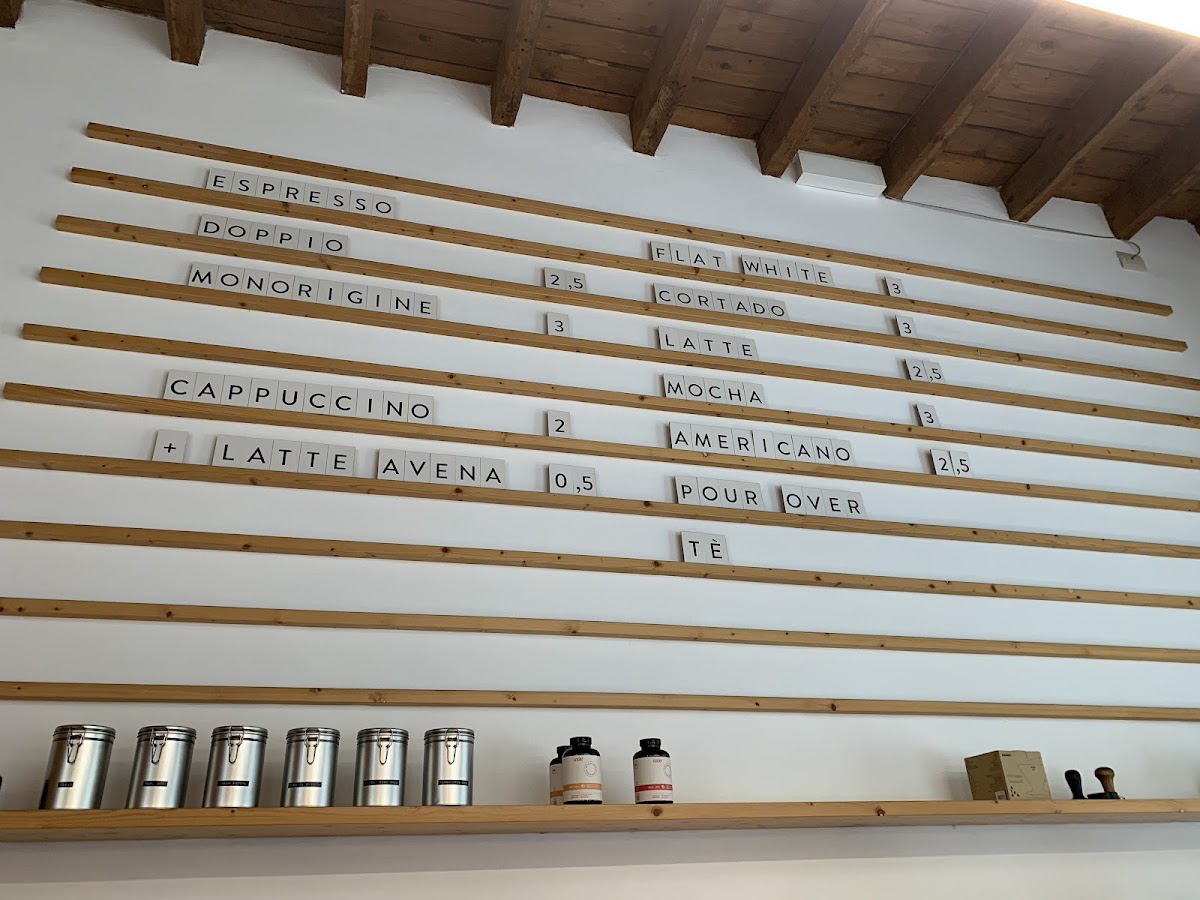 ESPRESSO
DOPPIO 2,5
MONORIGINE 3
CAPPUCCINO 2
+ LATTE AVENA 0,5
FLAT WHITE 3
CORTADO 3
LATTE 2,5
MOCHA 3
AMERICANO 2,5
POUR OVER
TÈ